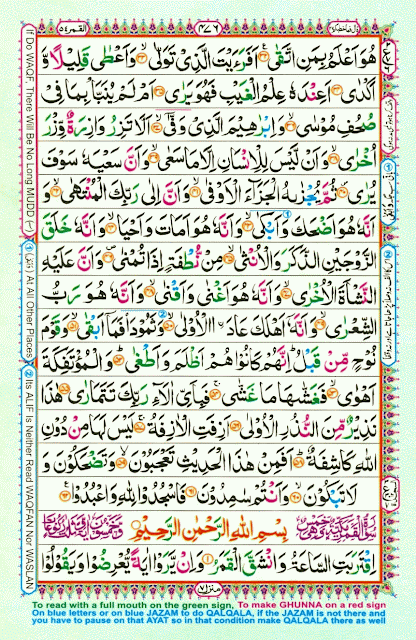 القمر ٥٤
٤٧٦
هُوَ اَعْلَمُ بِمَنِ اتَّقٰى ۝ اَفَرَءَيْتَ الَّذِىْ تَوَلّٰى ۝ وَاَعْطٰى قَلِيْلًا وَّ
اَكْدٰى ۝ اَعِنْدَهٗ عِلْمُ الْغَيْبِ فَهُوَ يَرٰى ۝ اَمْ لَمْ يُنَبَّاْ بِمَا فِىْ
صُحُفِ مُوْسٰى ۝ وَاِبْرٰهِيْمَ الَّذِىْ وَفّٰٓى ۝ اَلَّا تَزِرُ وَازِرَةٌ وِّزْرَ
اُخْرٰى ۝ وَاَنْ لَّيْسَ لِلْاِنْسَانِ اِلَّا مَا سَعٰى ۝ وَاَنَّ سَعْيَهٗ سَوْفَ
يُرٰى ۝ ثُمَّ يُجْزٰىهُ الْجَزَآءَ الْاَوْفٰى ۝ وَاَنَّ اِلٰى رَبِّكَ الْمُنْتَهٰى ۝ وَ
اَنَّهٗ هُوَ اَضْحَكَ وَاَبْكٰى ۝ وَاَنَّهٗ هُوَ اَمَاتَ وَاَحْيَا ۝ وَاَنَّهٗ خَلَقَ
الزَّوْجَيْنِ الذَّكَرَ وَالْاُنْثٰى ۝ مِنْ نُّطْفَةٍ اِذَا تُمْنٰى ۝ وَاَنَّ عَلَيْهِ
النَّشْاَةَ الْاُخْرٰى ۝ وَاَنَّهٗ هُوَ اَغْنٰى وَاَقْنٰى ۝ وَاَنَّهٗ هُوَ رَبُّ
الشِّعْرٰى ۝ وَاَنَّهٗٓ اَهْلَكَ عَادَا اۨلْاُوْلٰى ۝ وَثَمُوْدَا۟ فَمَآ اَبْقٰى ۝ وَقَوْمَ
نُوْحٍ مِّنْ قَبْلُ اِنَّهُمْ كَانُوْا هُمْ اَظْلَمَ وَاَطْغٰى ۝ وَالْمُؤْتَفِكَةَ
اَهْوٰى ۝ فَغَشّٰىهَا مَا غَشّٰى ۝ فَبِاَىِّ اٰلَآءِ رَبِّكَ تَتَمَارٰى ۝ هٰذَا
نَذِيْرٌ مِّنَ النُّذُرِ الْاُوْلٰى ۝ اَزِفَتِ الْاٰزِفَةُ ۝ لَيْسَ لَهَا مِنْ دُوْنِ
اللّٰهِ كَاشِفَةٌ ۝ اَفَمِنْ هٰذَا الْحَدِيْثِ تَعْجَبُوْنَ ۝ وَتَضْحَكُوْنَ وَ
لَا تَبْكُوْنَ ۝ وَاَنْتُمْ سٰمِدُوْنَ ۝ فَاسْجُدُوْا لِلّٰهِ وَاعْبُدُوْا ۝
بِسْمِ اللّٰهِ الرَّحْمٰنِ الرَّحِيْمِ
اِقْتَرَبَتِ السَّاعَةُ وَانْشَقَّ الْقَمَرُ ۝ وَاِنْ يَّرَوْا اٰيَةً يُّعْرِضُوْا وَيَقُوْلُوْا
منزل ٧
If Do WAQF, There Will Be No Long MUDD (~) ① At All Other Places ② Its ALIF Is Neither Read WAQFAN Nor WASLAN
To read with a full mouth on the green sign, To make GHUNNA on a red sign
On blue letters or on blue JAZAM to do QALQALA, if the JAZAM is not there and
you have to pause on that AYAT so in that condition make QALQALA there as well